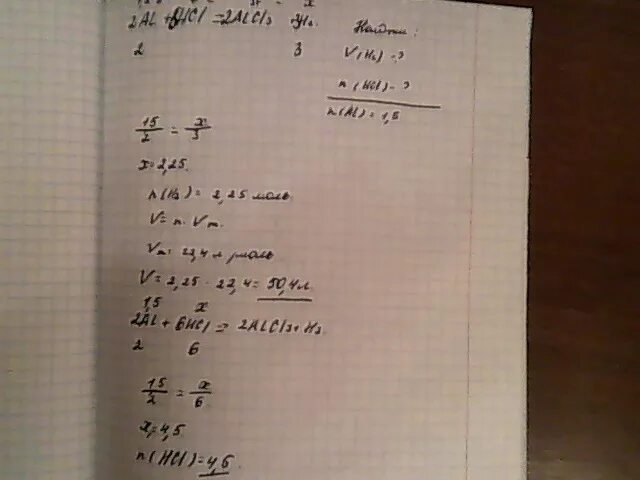 2AL + 6HCl = 2ALCl3 + 3H2
2 3
Найти:
V(H2) - ?
n(HCl) - ?
n(AL) = 1,5
15/2 = x/3
x = 2,25.
n(H2) = 2,25 моль
V = n · Vm.
Vm = 22,4 л/моль
V = 2,25 · 22,4 = 50,4 л.
1,5 x
2AL + 6HCl = 2ALCl3 + H2
2 6
15/2 = x/6
x = 4,5
n(HCl) = 4,5